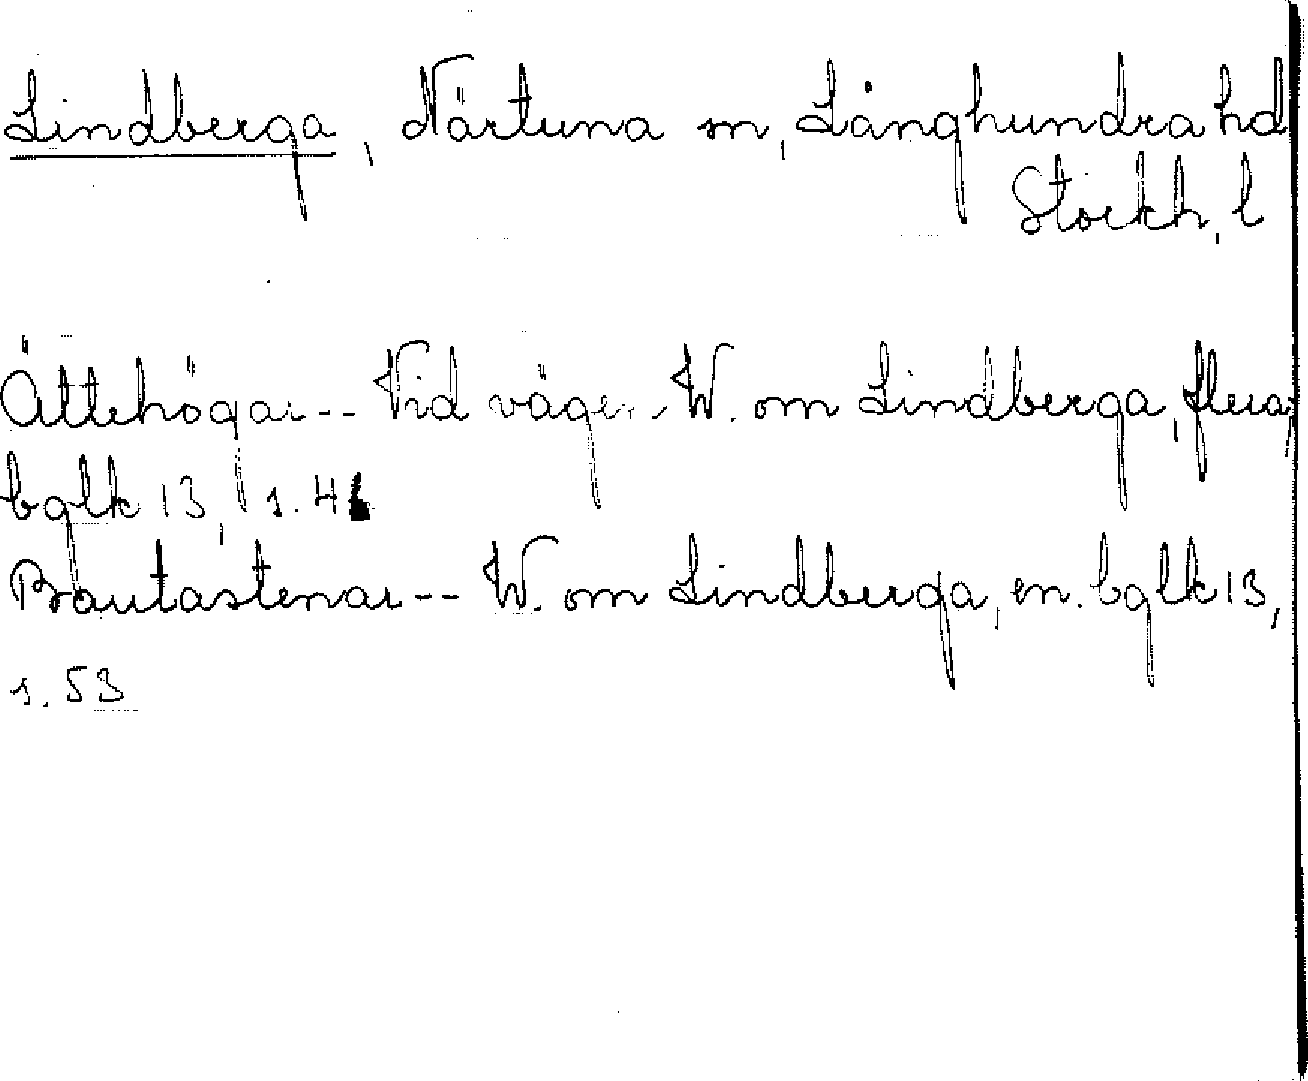 Lindberga, Närtuna sn, Långhundra hd
Stockh, l
Ättehögar -- Vid vägen W. om Lindberga, flera,
bglk 13, s.
Bautastenar -- W. om Lindberga, en. bglk 13,
s. 53